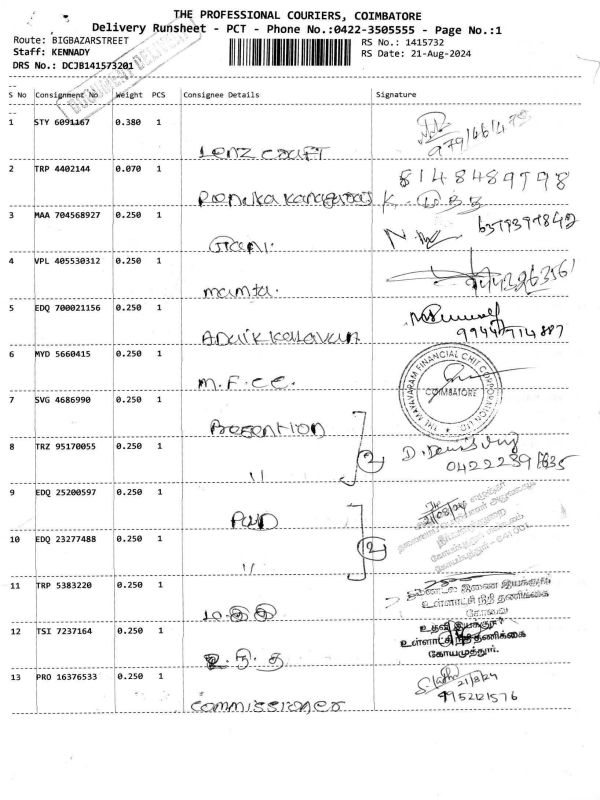 THE PROFESSIONAL COURIERS, COIMBATORE
Delivery Runsheet - PCT - Phone No.:0422-3505555 - Page No.:1
Route: BIGBAZARSTREET
RS No.: 1415732
Staff: KENNADY
RS Date: 21-Aug-2024
DRS No.: DCJB141573201
S No Consignment No Weight PCS Consignee Details Signature
1 STY 6091167 0.380 1
Lenz craft
2 TRP 4402144 0.070 1 8148489798
3 MAA 704568927 0.250 1
Rani.
4 VPL 405530312 0.250 1
mamta.
5 EDQ 700021156 0.250 1
9944914887
6 MYD 5660415 0.250 1
M.F.C.C. THE MAYAVARAM FINANCIAL CHIT CORPORATION LTD COIMBATORE
7 SVG 4686990 0.250 1
8 TRZ 95170055 0.250 1 2
" 
9 EDQ 25200597 0.250 1
PWD 21/08/24
10 EDQ 23277488 0.250 1 2
"
11 TRP 5383220 0.250 1 இணை இயக்குநர்
உள்ளாட்சி நிதி தணிக்கை
கோவை
12 TSI 7237164 0.250 1 உதவி இயக்குநர்
உ.நி.த உள்ளாட்சி நிதி தணிக்கை
கோயமுத்தூர்.
13 PRO 16376533 0.250 1 21/8/24
commissioner 9952121576